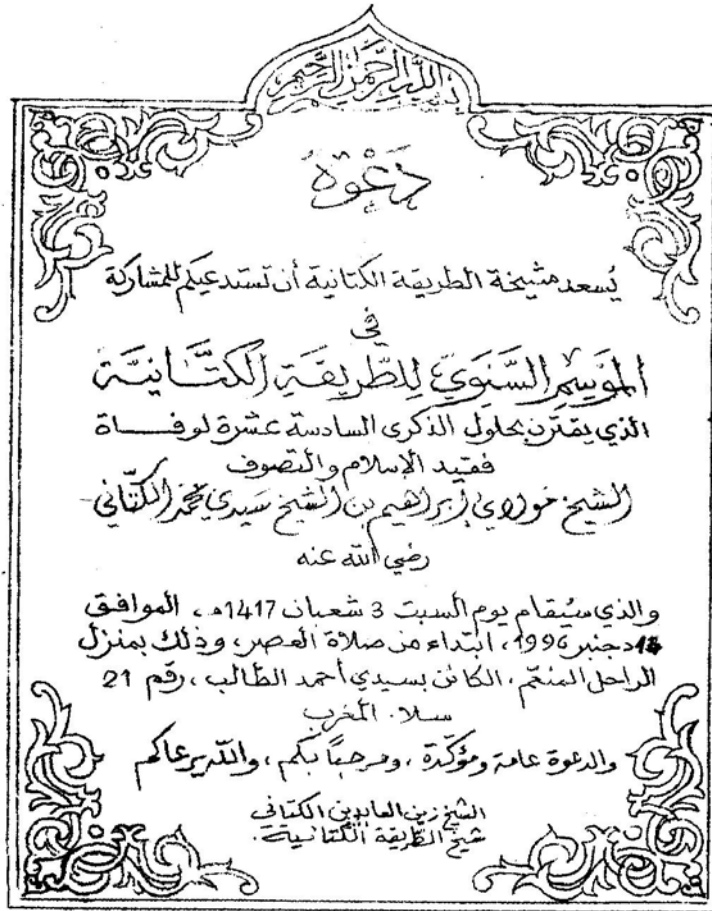 بسم الله الرحمن الرحيم
دَعْوَة
يُسعد مشيخة الطريقة الكتانية أن تستدعيكم للمشاركة
في
الموسم السنوي للطريقة الكتانية
الذي يقترن بحلول الذكرى السادسة عشرة لوفاة
فقيد الإسلام والتصوف
الشيخ مولاي إبراهيم بن الشيخ سيدي محمد الكتاني
رضي الله عنه
والذي سيُقام يوم السبت 3 شعبان 1417هـ، الموافق
دجنبر 1996، ابتداء من صلاة العصر، وذلك بمنزل
الراحل المنعّم، الكائن بسيدي أحمد الطالب، رقم 21
سلا. المغرب
والدعوة عامة ومؤكّدة، ومرحباً بكم، والله يرعاكم
الشيخ زين العابدين الكتاني
شيخ الطريقة الكتانية.